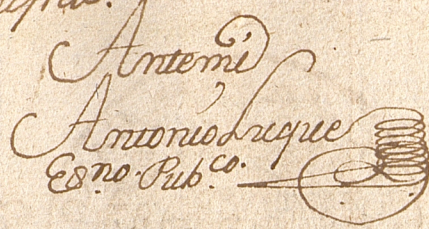 Antemi
Antonio Luque
Es.no Pub.co